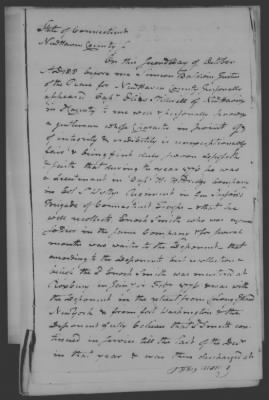 State of Connecticut
New Haven County
On this second day of October
AD 1818 before me Simeon Baldwin Justice
of the Peace for New Haven County personally
appeared Capt Elias Stillwell of New Haven
in County to me well & personally known
a gentleman whose Character in point of
of integrity & credibility is unexceptionally
fair & being first duly sworn deposeth
& saith that during the year 1776 he was
a Lieutenant in Company
in Col Regiment in Gen
Brigade of Connecticut Troops & that he
well recollects Enoch Smith who was a
soldier in the same Company & for several
months was waiter to the Deponent that
according to the Deponent best recollection &
belief the sd Enoch Smith was mustered at
Roxbury in Jany or Feb 1776 & was with
the Deponent in the retreat from Long Island
New York & from Fort Washington & the
Deponent fully believes that sd Smith con
tinued in service till the last of the Decr
in that year & was then discharged at